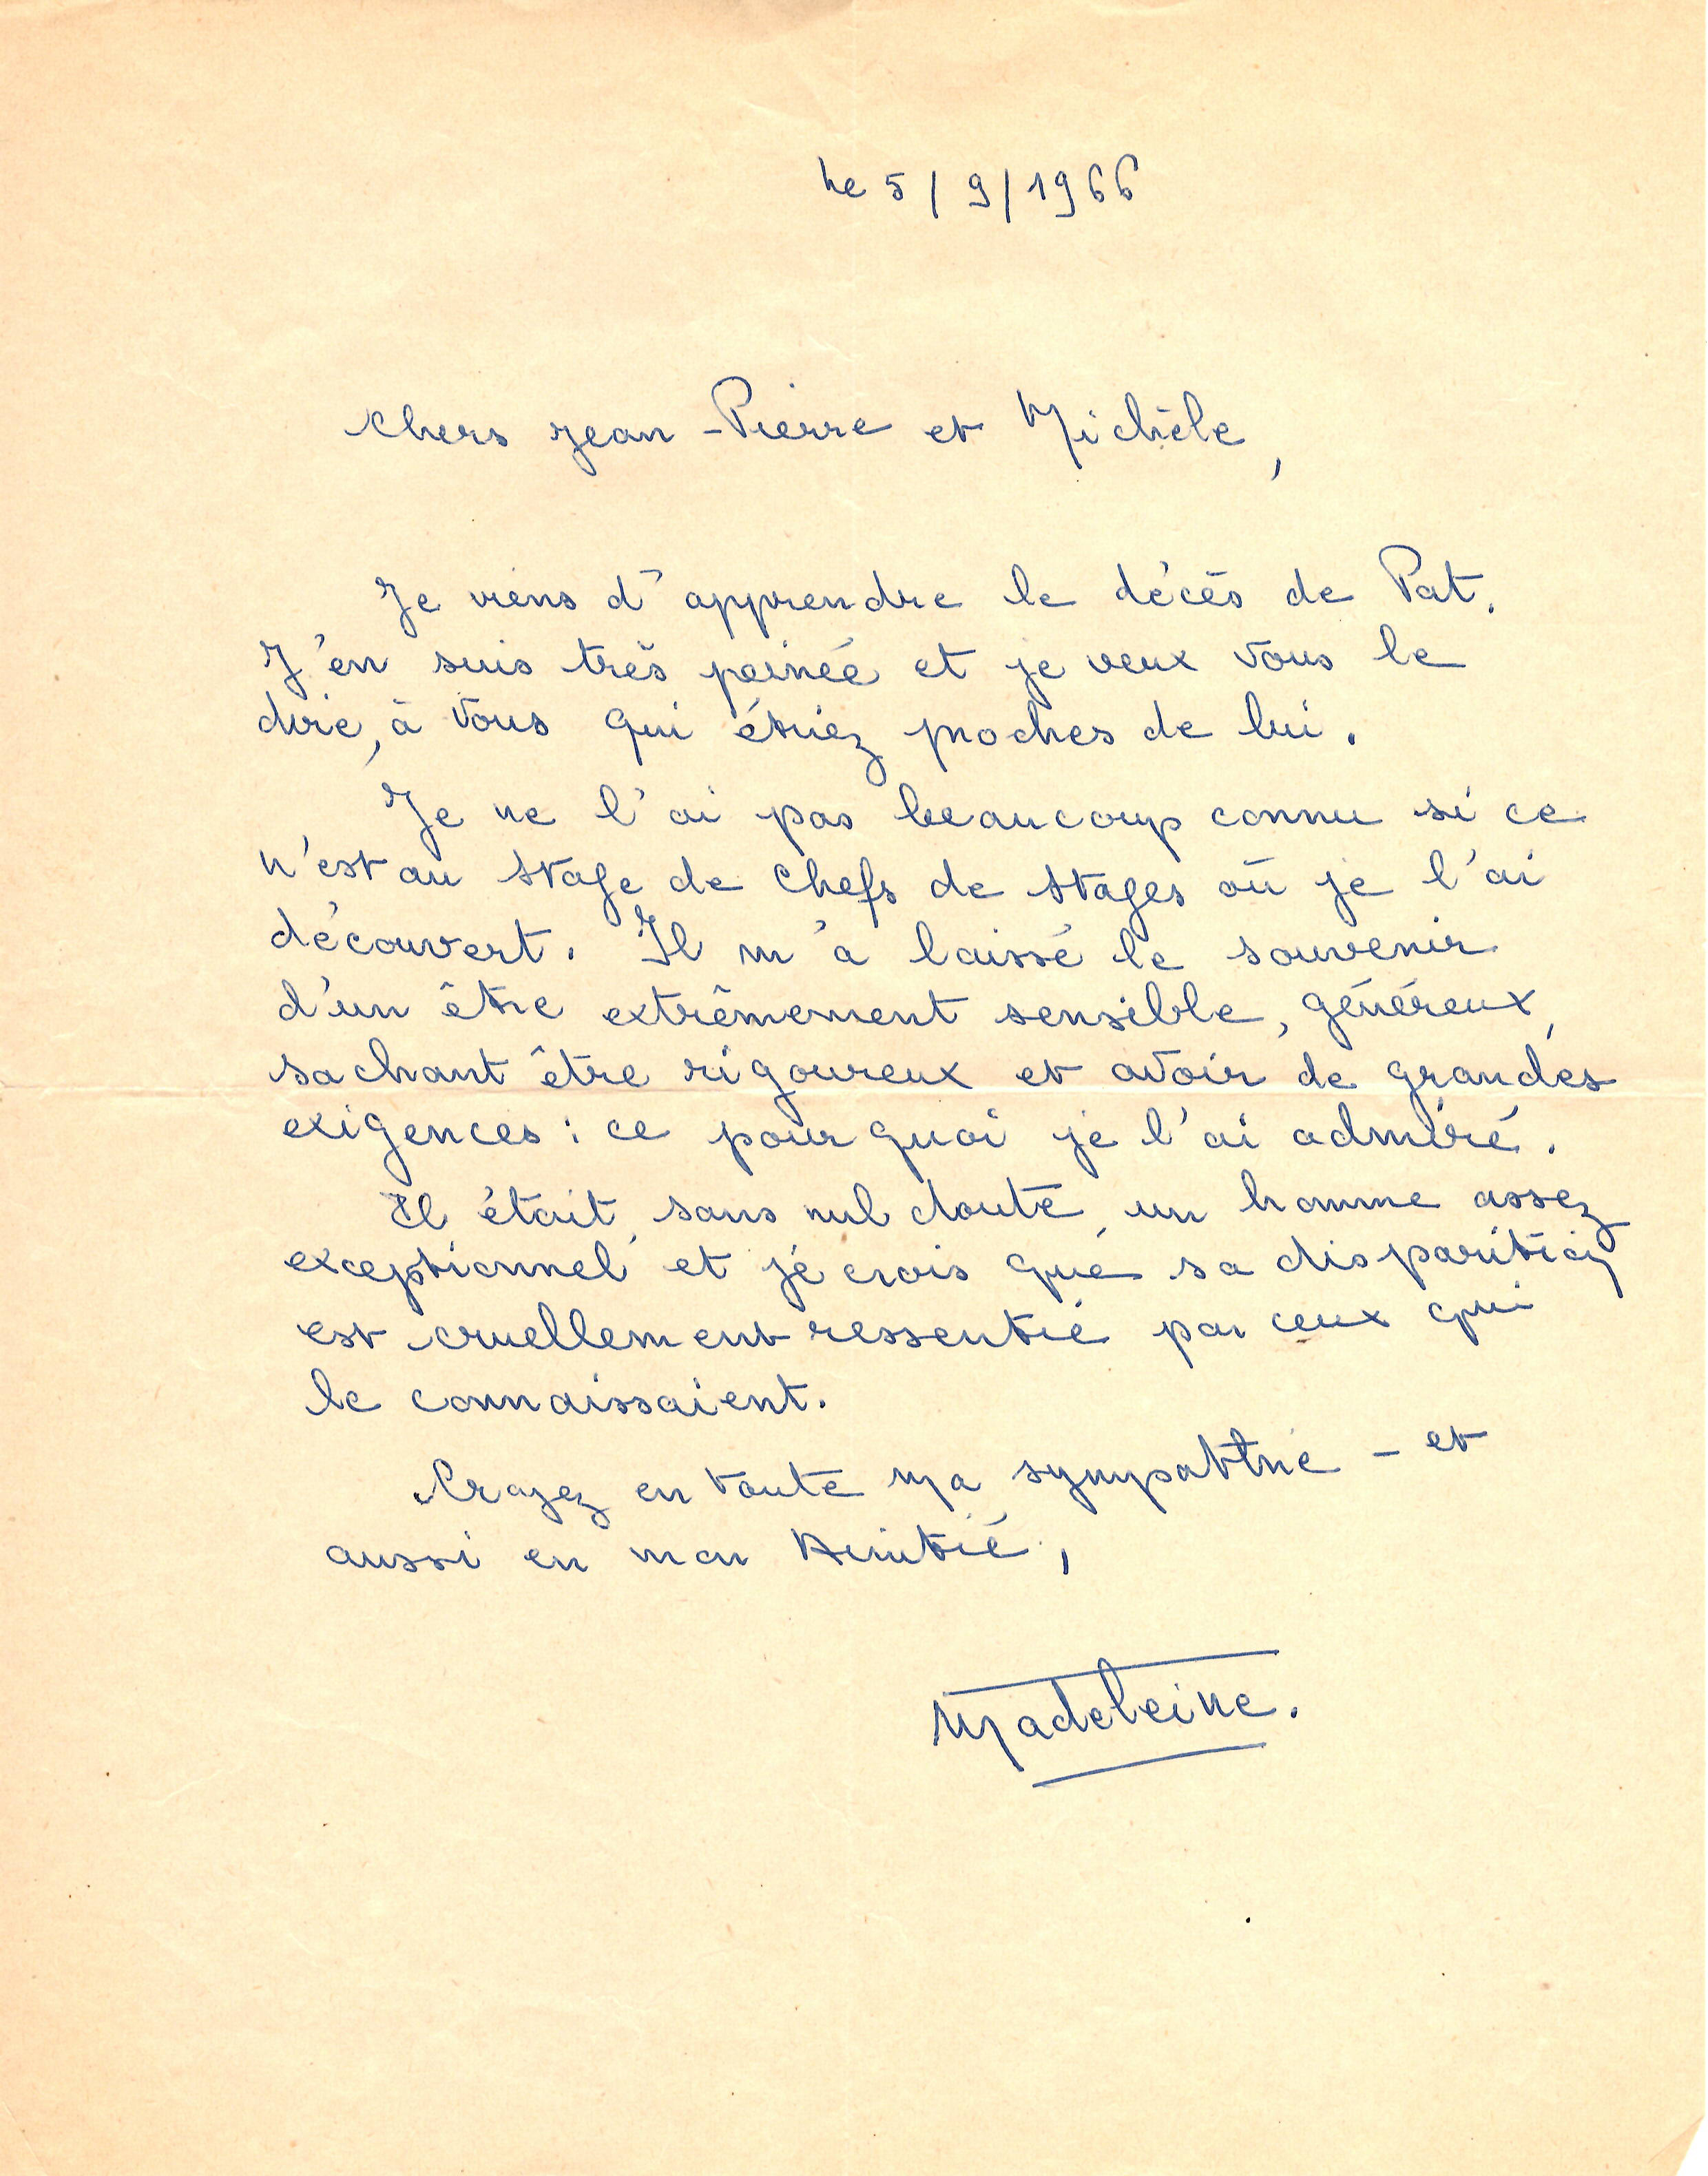 Le 5/9/1966
Chers Jean-Pierre et Michèle,
Je viens d'apprendre le décès de Pat.
J'en suis très peinée et je veux vous le
dire, à vous qui étiez proches de lui.
Je ne l'ai pas beaucoup connu si ce
n'est au stage de Chefs de stages où je l'ai
découvert. Il m'a laissé le souvenir
d'un être extrêmement sensible, généreux,
sachant être rigoureux et avoir de grandes
exigences : ce pour quoi je l'ai admiré.
Il était, sans nul doute, un homme assez
exceptionnel et je crois que sa disparition
est cruellement ressentie par ceux qui
le connaissaient.
Croyez en toute ma sympathie - et
aussi en mon Amitié,
Madeleine.